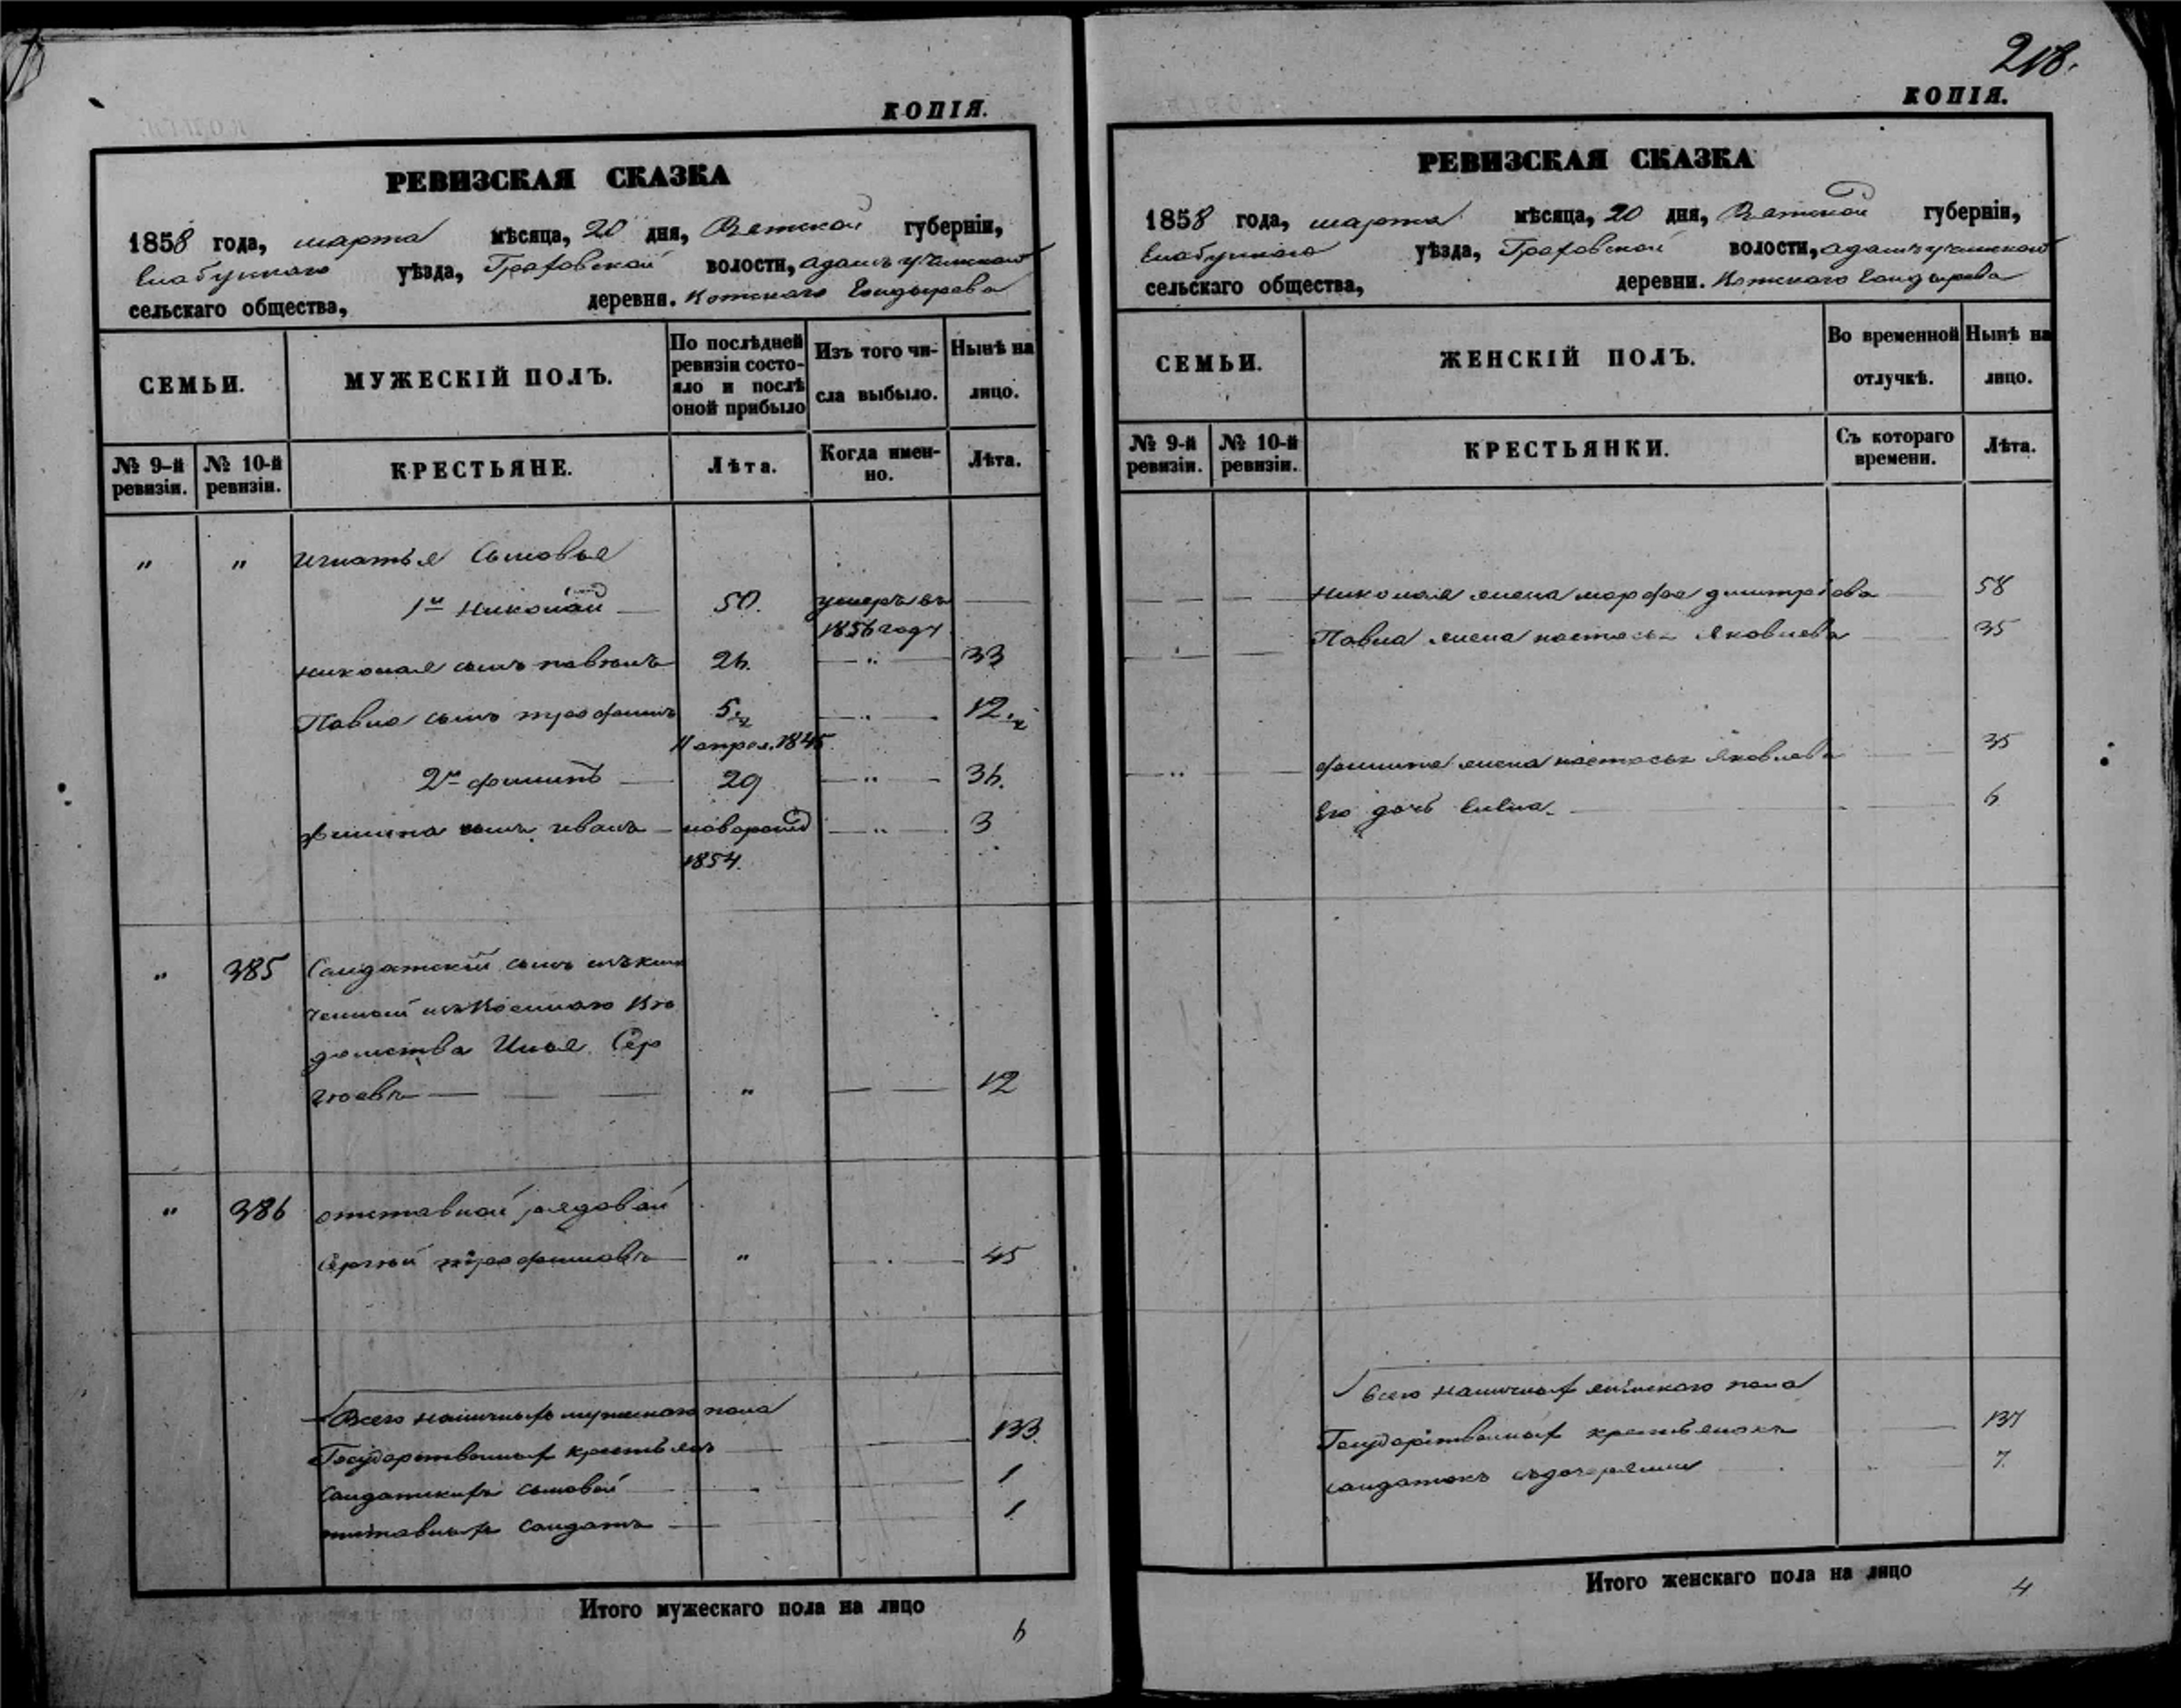 КОПІЯ.
РЕВИЗСКАЯ СКАЗКА
1858 года, марта мѣсяца, 20 дня, Вятской губерніи,
Елабужскаго уѣзда, Граховской волости, Адамъ учинскаго
сельскаго общества, деревни. Котскаго Гондырева
СЕМЬИ.
МУЖЕСКІЙ ПОЛЪ.
По послѣдней ревизіи состояло и послѣ оной прибыло
Изъ того числа выбыло.
Нынѣ на лицо.
№ 9-й ревизіи.
№ 10-й ревизіи.
КРЕСТЬЯНЕ.
Лѣта.
Когда именно.
Лѣта.
" " Игнатья Сыновья
1й Николай 50. умеръ въ
1856 году
Николая сынъ павелъ 26. " 33
Павла сынъ трофимъ 5 " 12
11 апрел. 1845
2й филипъ 29 " 36.
Филипа сынъ иванъ новорожд " 3
1854.
" 385 Солдатскій сынъ исклю
ченный изъ Военнаго Вѣ
домства Илья Сер
гѣевъ " 12
" 386 отставной рядовой
Сергѣй трофимовъ " 45
Всего наличныхъ мужескаго пола
Государственныхъ крестьянъ 133.
Солдатскихъ сыновей 1
отставныхъ Солдатъ 1
Итого мужескаго пола на лицо
6
218.
КОПІЯ.
РЕВИЗСКАЯ СКАЗКА
1858 года, марта мѣсяца, 20 дня, Вятской губерніи,
Елабужскаго уѣзда, Граховской волости, Адамъ учинскаго
сельскаго общества, деревни. Котскаго Гондырева
СЕМЬИ.
ЖЕНСКІЙ ПОЛЪ.
Во временной отлучкѣ.
Нынѣ на лицо.
№ 9-й ревизіи.
№ 10-й ревизіи.
КРЕСТЬЯНКИ.
Съ котораго времени.
Лѣта.
Николая жена марфа дмитріева 58
Павла жена настасья Яковлева 35
филипа жена настасья Яковлева 35
Его дочь 6
Всего наличныхъ женскаго пола
Государственныхъ крестьянокъ 137
солдатокъ съ дочерями 7.
Итого женскаго пола на лицо
4